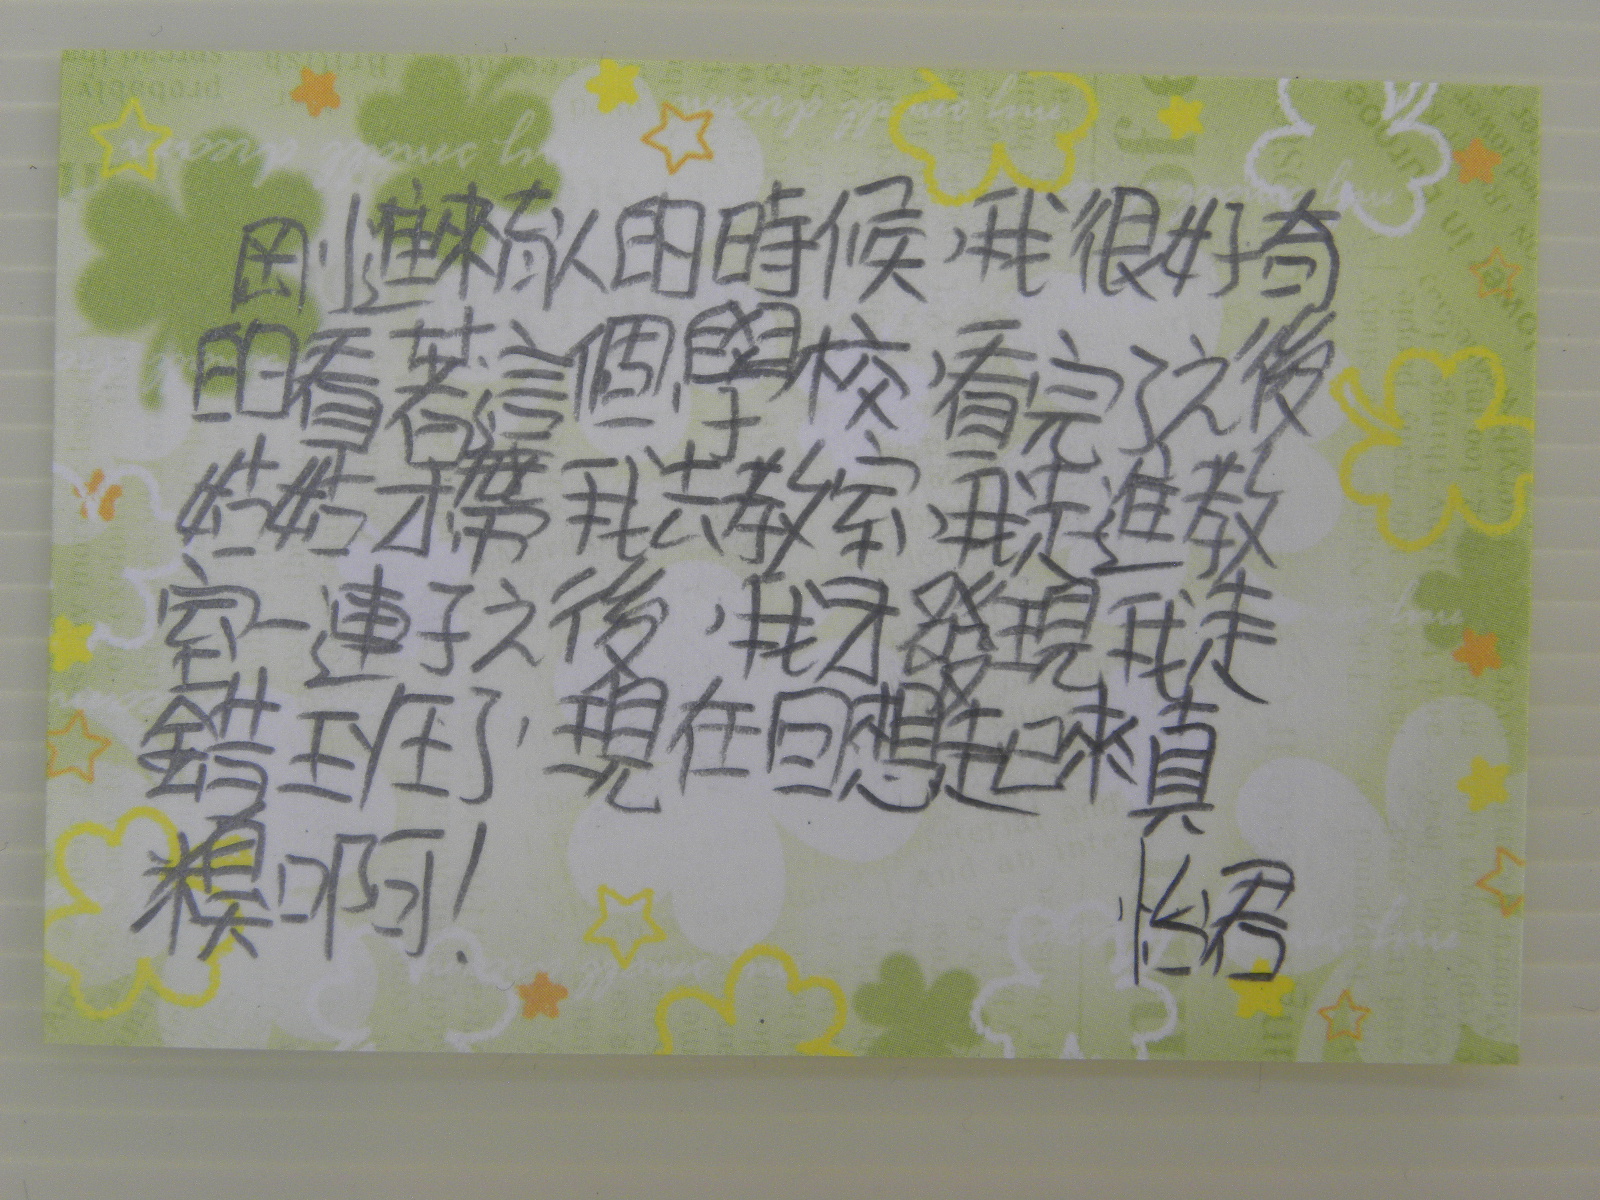 剛進來育人的時候,我很好奇
的看著這個學校,看完了之後
姑姑才帶我去教室,我走進教
室一連子之後,我才發現我走
錯班了,現在回想起來真
糗啊!
怡君
my small dream
my small dream